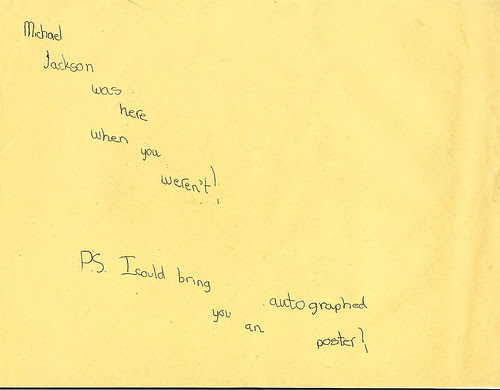 Michael
Jackson
was
here
when you
weren't!
P.S. I could bring
you an
autographed
poster!